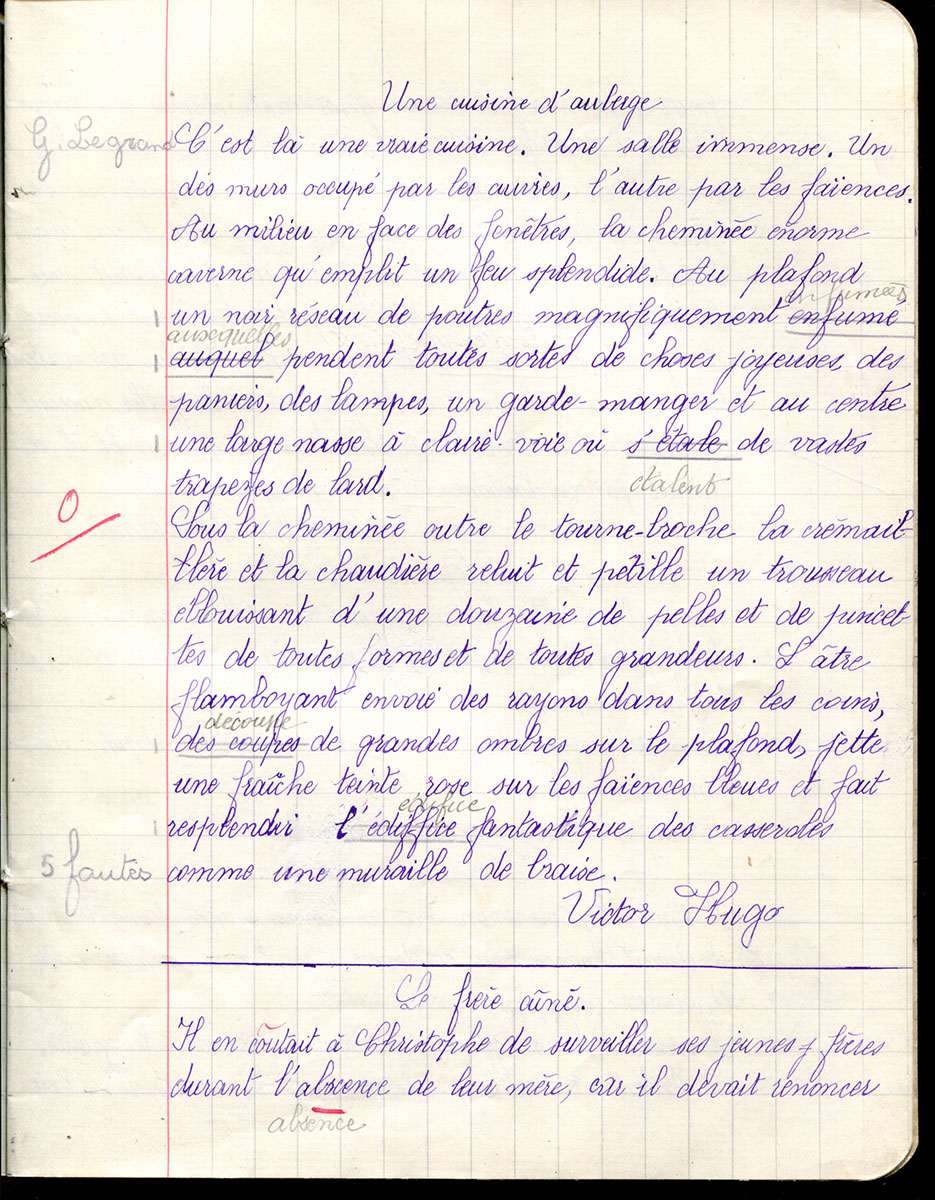 Une cuisine d'auberge
G. Legrand
C'est là une vraie cuisine. Une salle immense. Un
des murs occupé par les cuivres, l'autre par les faïences.
Au milieu en face des fenêtres, la cheminée énorme
caverne qu'emplit un feu splendide. Au plafond
enfumées
un noir réseau de poutres magnifiquement enfumé
auxquelles
auquel pendent toutes sortes de choses joyeuses, des
paniers, des lampes, un garde-manger et au centre
une large nasse à claire-voie où s'étale de vastes
étalent
trapèzes de lard.
0
Sous la cheminée outre le tourne-broche la crémail-
lère et la chaudière reluit et pétille un trousseau
éblouissant d'une douzaine de pelles et de pincet-
tes de toutes formes et de toutes grandeurs. L'âtre
flamboyant envoie des rayons dans tous les coins,
découpe
des coupes de grandes ombres sur le plafond, jette
une fraîche teinte rose sur les faïences bleues et fait
édifice
resplendir l'édiffice fantastique des casseroles
5 fautes
comme une muraille de braise.
Victor Hugo
Le frère aîné.
Il en coûtait à Christophe de surveiller ses jeunes frères
durant l'abscence de leur mère, car il devait renoncer
absence